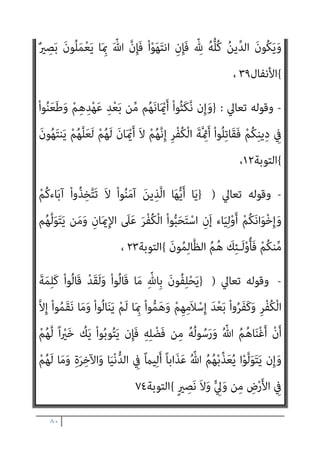 وَيَكُونَ الدِّينُ كُلُّهُ لِلّهِ فَإِنِ انتَهَوْاْ فَإِنَّ اللّهَ بِمَا يَعْمَلُونَ بَصِيرٌ
{الأنفال٣٩ ،
- وقوله تعالي : {وَإِن نَّكَثُواْ أَيْمَانَهُم مِّن بَعْدِ عَهْدِهِمْ وَطَعَنُواْ
فِي دِينِكُمْ فَقَاتِلُواْ أَئِمَّةَ الْكُفْرِ إِنَّهُمْ لاَ أَيْمَانَ لَهُمْ لَعَلَّهُمْ يَنتَهُونَ
{التوبة١٢،
- وقوله تعالي ( {يَا أَيُّهَا الَّذِينَ آمَنُواْ لاَ تَتَّخِذُواْ آبَاءكُمْ
وَإِخْوَانَكُمْ أَوْلِيَاء إَنِ اسْتَحَبُّواْ الْكُفْرَ عَلَى الإِيمَانِ وَمَن يَتَوَلَّهُم
مِّنكُمْ فَأُوْلَـئِكَ هُمُ الظَّالِمُونَ {التوبة٢٣ ،
- وقوله تعالي ( {يَحْلِفُونَ بِاللّهِ مَا قَالُواْ وَلَقَدْ قَالُواْ كَلِمَةَ
الْكُفْرِ وَكَفَرُواْ بَعْدَ إِسْلاَمِهِمْ وَهَمُّواْ بِمَا لَمْ يَنَالُواْ وَمَا نَقَمُواْ إِلاَّ
أَنْ أَغْنَاهُمُ اللّهُ وَرَسُولُهُ مِن فَضْلِهِ فَإِن يَتُوبُواْ يَكُ خَيْراً لَّهُمْ
وَإِن يَتَوَلَّوْا يُعَذِّبْهُمُ اللّهُ عَذَاباً أَلِيماً فِي الدُّنْيَا وَالآخِرَةِ وَمَا لَهُمْ
فِي الأَرْضِ مِن وَلِيٍّ وَلاَ نَصِيرٍ {التوبة٧٤
٨٠